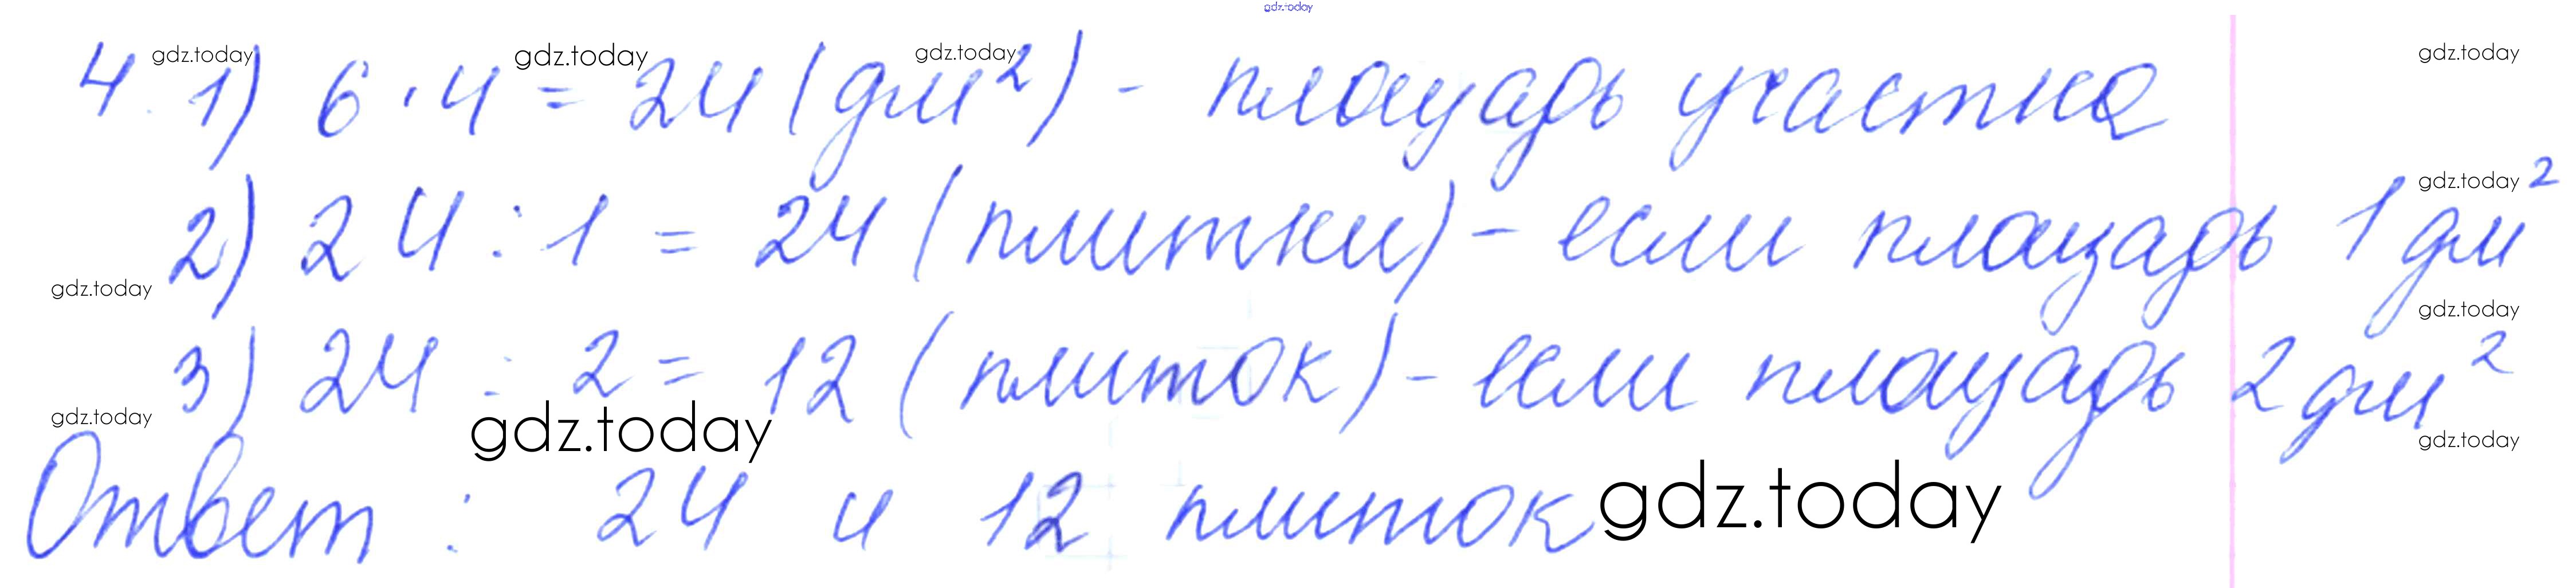 gdz.today
4. 1) 6 · 4 = 24 (дм²) - площадь участка
gdz.today gdz.today gdz.today gdz.today
2) 24 : 1 = 24 (плитки) - если площадь 1 дм²
gdz.today
gdz.today gdz.today
3) 24 : 2 = 12 (плиток) - если площадь 2 дм²
gdz.today gdz.today gdz.today
Ответ : 24 и 12 плиток
gdz.today